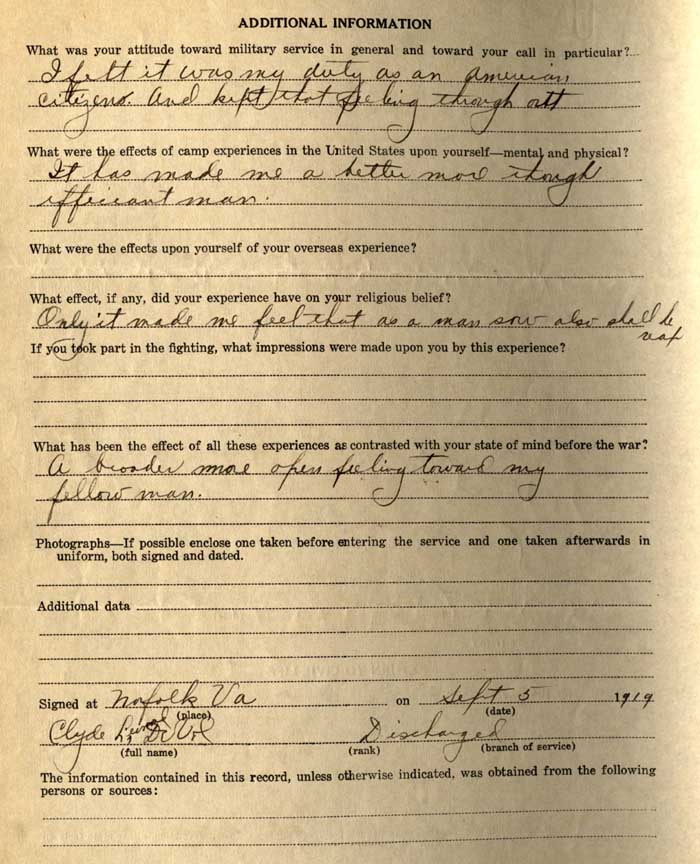 ADDITIONAL INFORMATION
What was your attitude toward military service in general and toward your call in particular?
I felt it was my duty as an American
citizens. And kept that feeling through outt
What were the effects of camp experiences in the United States upon yourself—mental and physical?
It has made me a better more though
efficiant man.
What were the effects upon yourself of your overseas experience?
What effect, if any, did your experience have on your religious belief?
Only it made me feel that as a man sow also shall he
reap
If you took part in the fighting, what impressions were made upon you by this experience?
What has been the effect of all these experiences as contrasted with your state of mind before the war?
A broader more open feeling toward my
fellow man.
Photographs—If possible enclose one taken before entering the service and one taken afterwards in
uniform, both signed and dated.
Additional data
Signed at Norfolk Va on Sept 5 1919
(place) (date)
Clyde DeVol Discharged
(full name) (rank) (branch of service)
The information contained in this record, unless otherwise indicated, was obtained from the following
persons or sources: